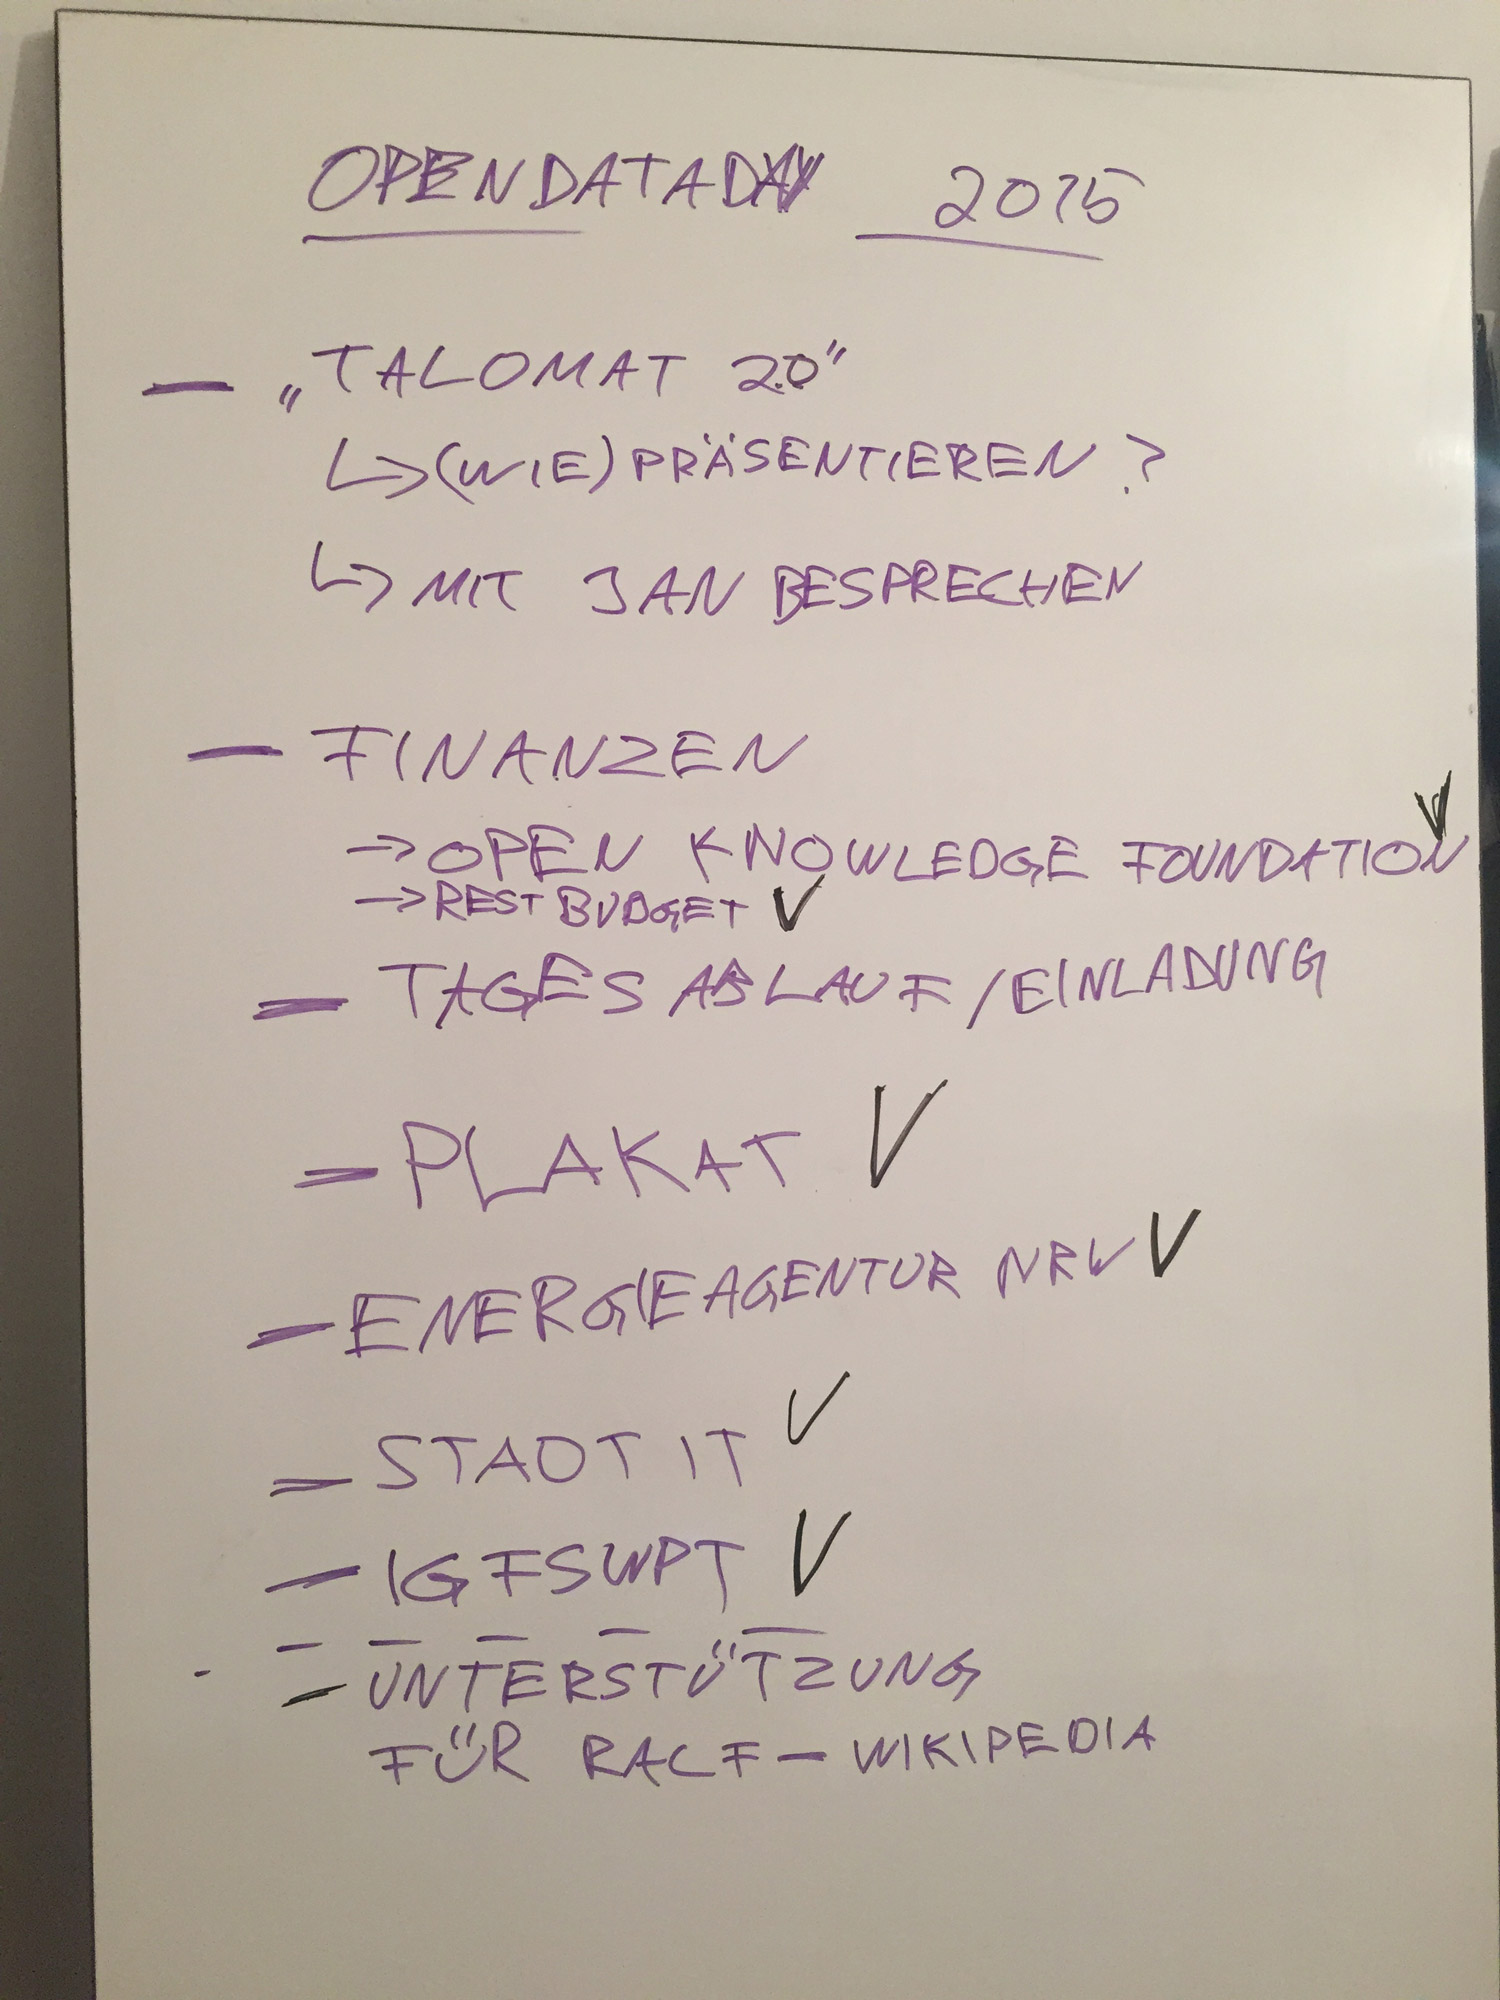 OPENDATADAY 2015
– „TALOMAT 2.0"
↳ (WIE) PRÄSENTIEREN ?
↳ MIT JAN BESPRECHEN
– FINANZEN
→ OPEN KNOWLEDGE FOUNDATION ✓
→ REST BUDGET ✓
– TAGESABLAUF / EINLADUNG
– PLAKAT ✓
– ENERGIEAGENTUR NRW ✓
– STADT IT ✓
– IGFSWPT ✓
– UNTERSTÜTZUNG
FÜR RALF – WIKIPEDIA